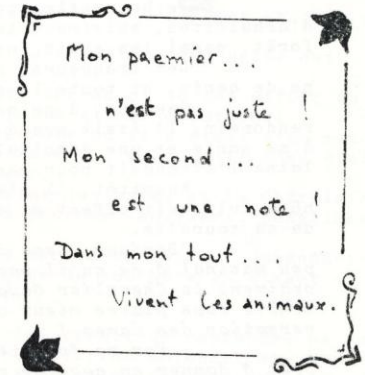 Mon premier...
n'est pas juste !
Mon second...
est une note !
Dans mon tout....
Vivent les animaux.